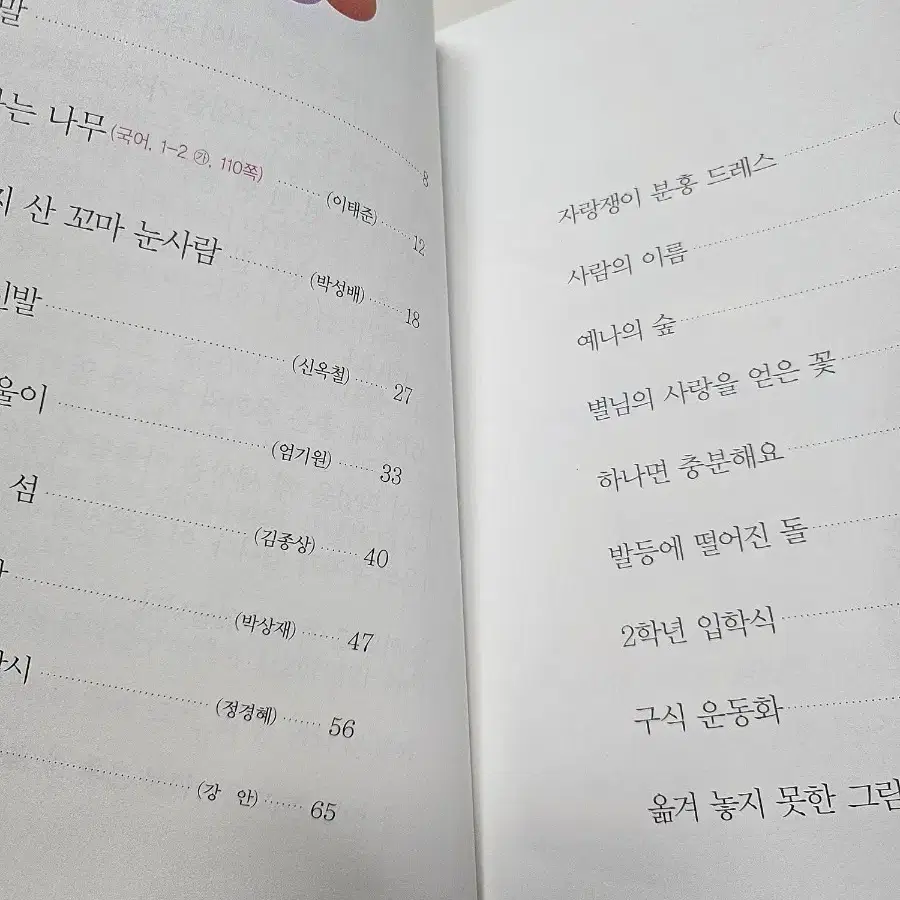 말 8
는 나무 (국어, 1-2 ㉮, 110쪽) (이태준) 12
산 꼬마 눈사람 (박성배) 18
발 (신옥철) 27
울이 (엄기원) 33
섬 (김종상) 40
(박상재) 47
시 (정경혜) 56
(강 안) 65
자랑쟁이 분홍 드레스
사람의 이름
예나의 숲
별님의 사랑을 얻은 꽃
하나면 충분해요
발등에 떨어진 돌
2학년 입학식
구식 운동화
옮겨 놓지 못한 그림